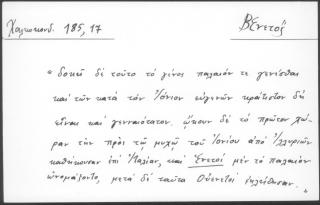 Χαλκοκονδ. 185, 17
Βενετός
"δοκεῖ δὲ τοῦτο τὸ γένος παλαιόν τε γενέσθαι
καὶ τῶν κατὰ τὸν Ἰόνιον εὐγενῶν κράτιστον δὴ
εἶναι καὶ γενναιότατον. ᾤκουν δὲ τὸ πρῶτον χώ-
ραν τὴν πρὸς τῷ μυχῷ τοῦ Ἰονίου ἀπὸ Ἰλλυριῶν
καθήκουσαν ἐπὶ Ἰταλίαν, καὶ Ἐνετοὶ μὲν τὸ παλαιὸν
ὠνομάζοντο, μετὰ δὲ ταῦτα Οὐενετοὶ ἐκλήθησαν."